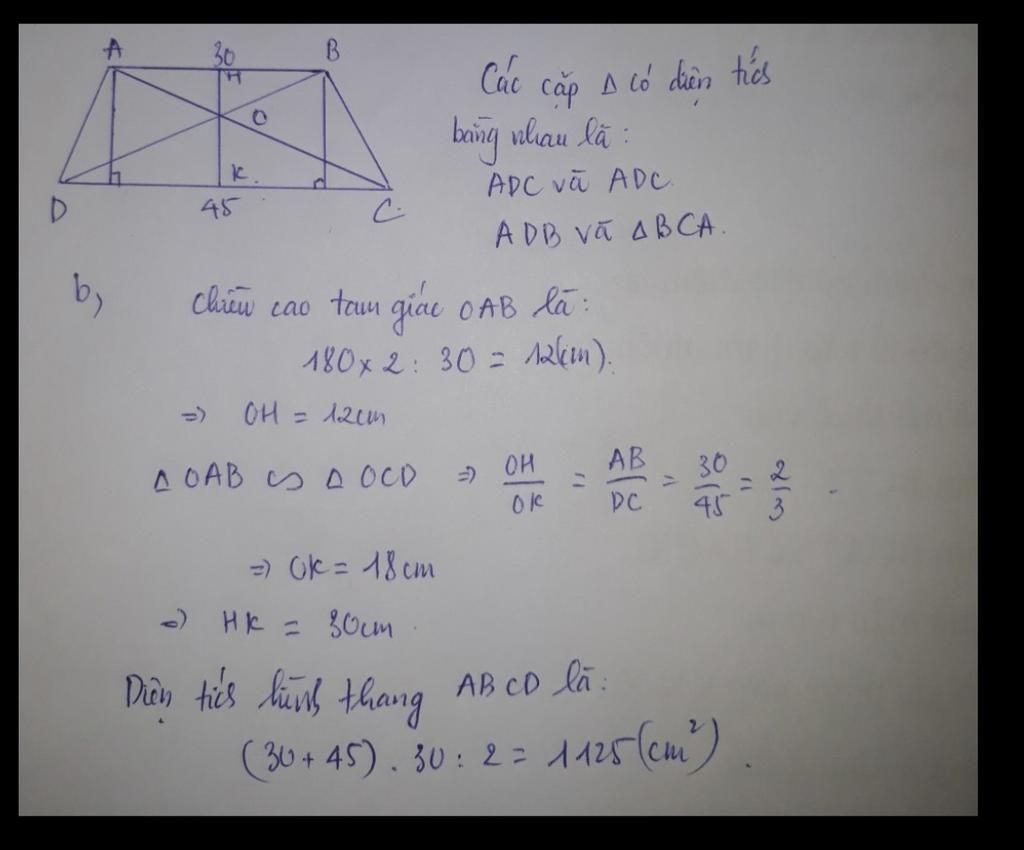 A 30 B
H
O
K.
D 45 C
Các cặp Δ có diện tích
bằng nhau là:
ADC và ADC.
ADB và ΔBCA.
b, Chiều cao tam giác OAB là:
180 x 2 : 30 = 12(cm).
=> OH = 12cm
Δ OAB ∽ Δ OCD => OH/OK = AB/DC = 30/45 = 2/3 .
=> OK = 18cm
=> HK = 30cm .
Diện tích hình thang ABCD là:
(30 + 45) . 30 : 2 = 1125 (cm²) .